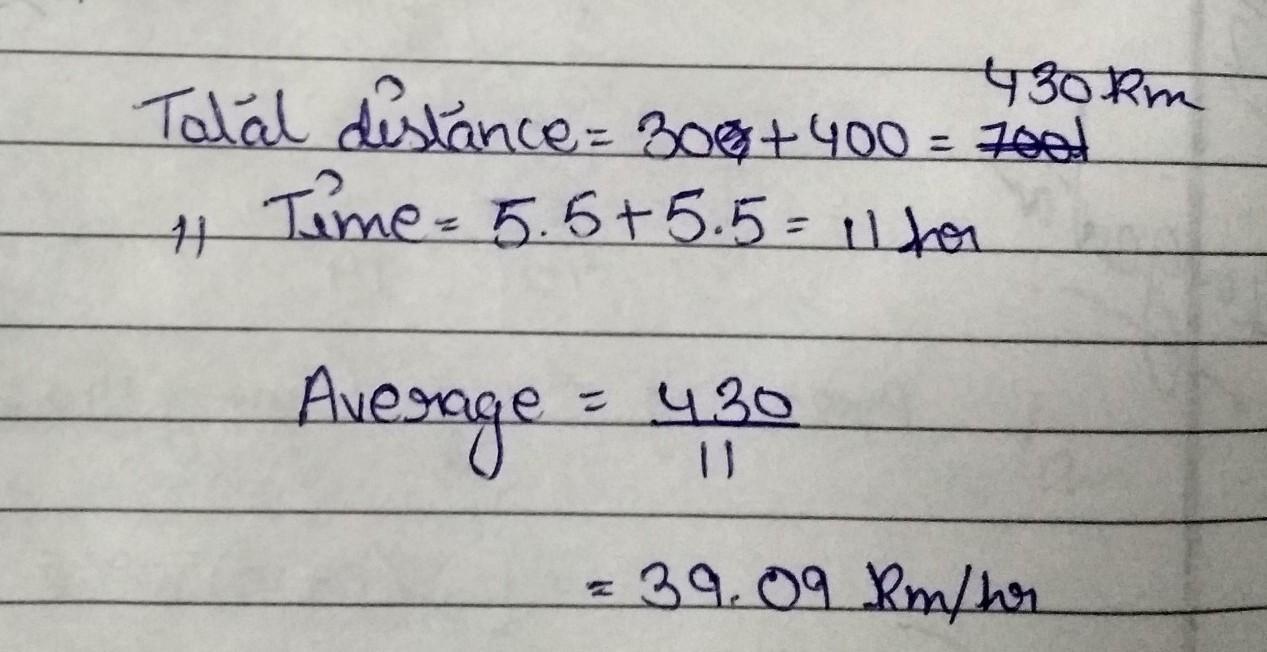 430 km
Total distance = 30 + 400 = 700
" Time = 5.5 + 5.5 = 11 hr
Average = 430
11
= 39.09 km/hr